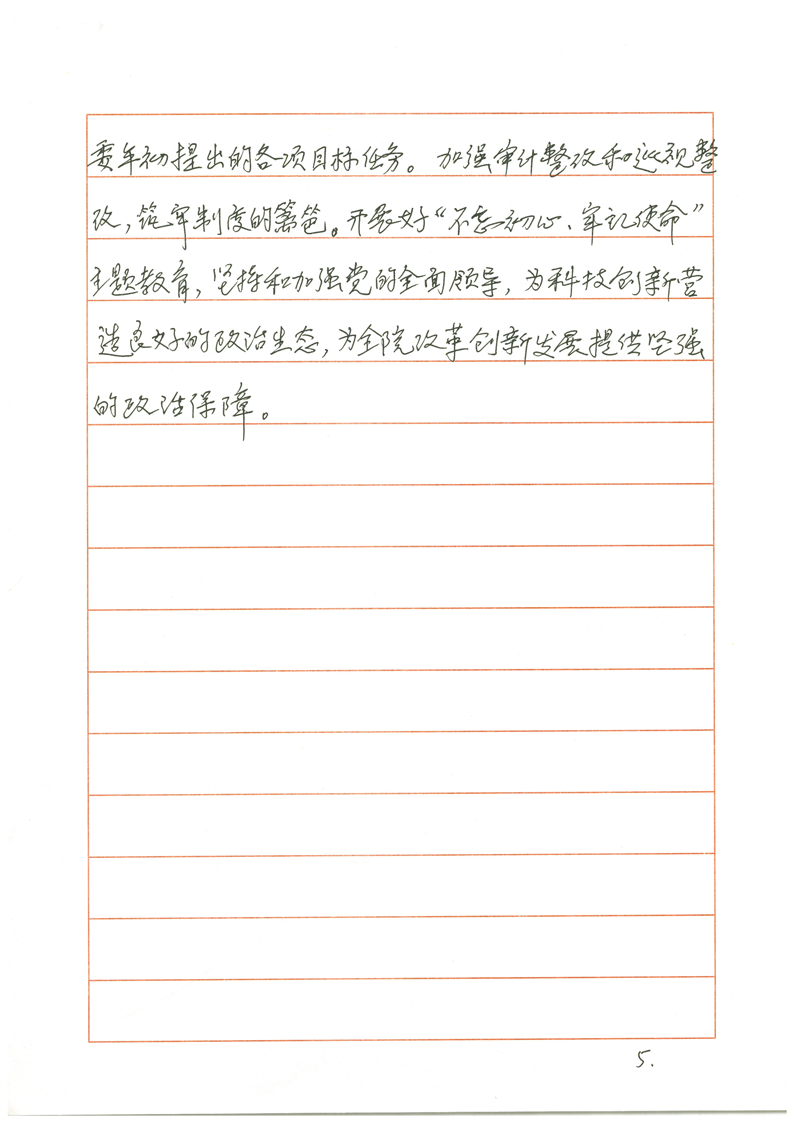 委年初提出的各项目标任务。加强审计整改和巡视整
改，筑牢制度的篱笆。开展好“不忘初心、牢记使命”
主题教育，坚持和加强党的全面领导，为科技创新营
造良好的政治生态，为全院改革创新发展提供坚强
的政治保障。
5.